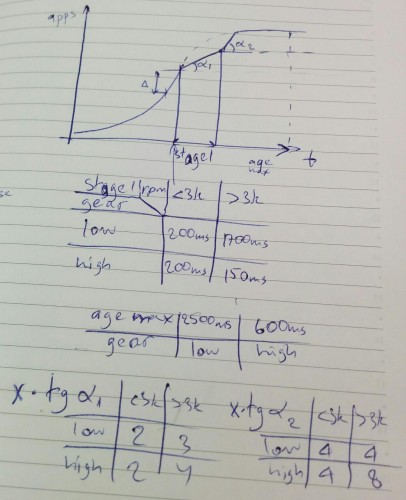 apps
α₂
α₁
Δ
stage1
age max
t
stage1 | rpm | <3k | >3k
gear
low | 200ms | 1700ms
high | 200ms | 150ms
age max | 2500ms | 600ms
gear | low | high
x·tg α₁ | <3k | >3k
low | 2 | 3
high | 2 | 4
x·tg α₂ | <3k | >3k
low | 4 | 4
high | 4 | 8